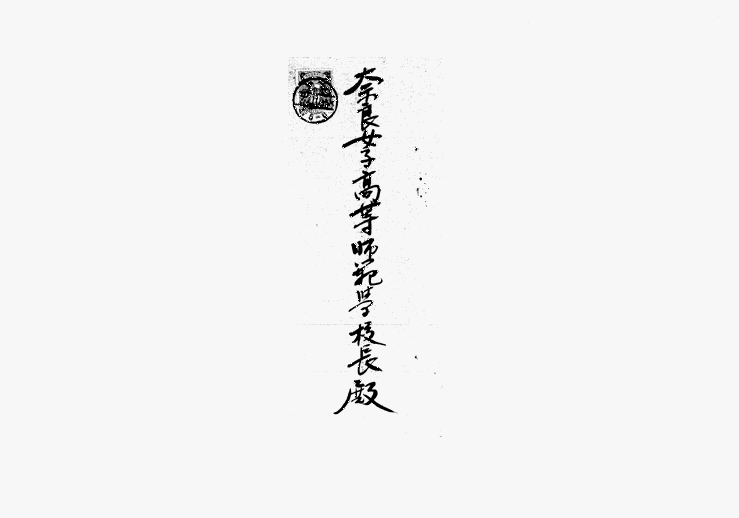 奈良女子高等師範學校長殿